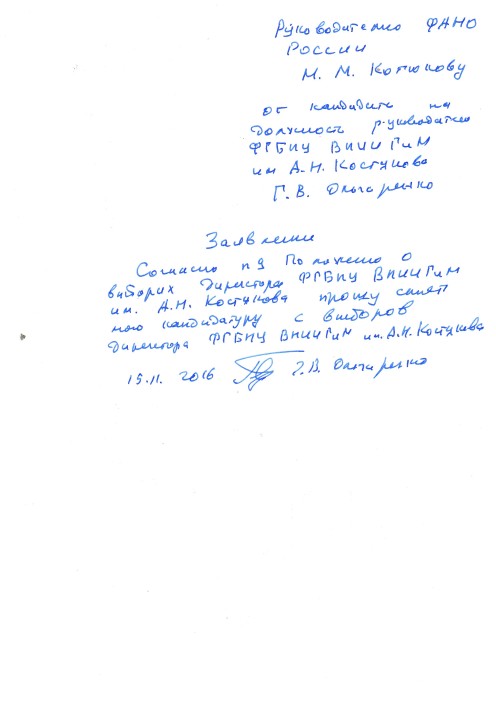 Руководителю ФАНО
России
М. М. Котюкову
от кандидата на
должность руководителя
ФГБНУ ВНИИГиМ
им А.Н. Костякова
Г. В. Ольгаренко
Заявление
Согласно п 9 Положения о
выборах директора ФГБНУ ВНИИГиМ
им. А.Н. Костякова прошу снять
мою кандидатуру с выборов
директора ФГБНУ ВНИИГиМ им. А.Н. Костякова
15.11. 2016 Г.В. Ольгаренко